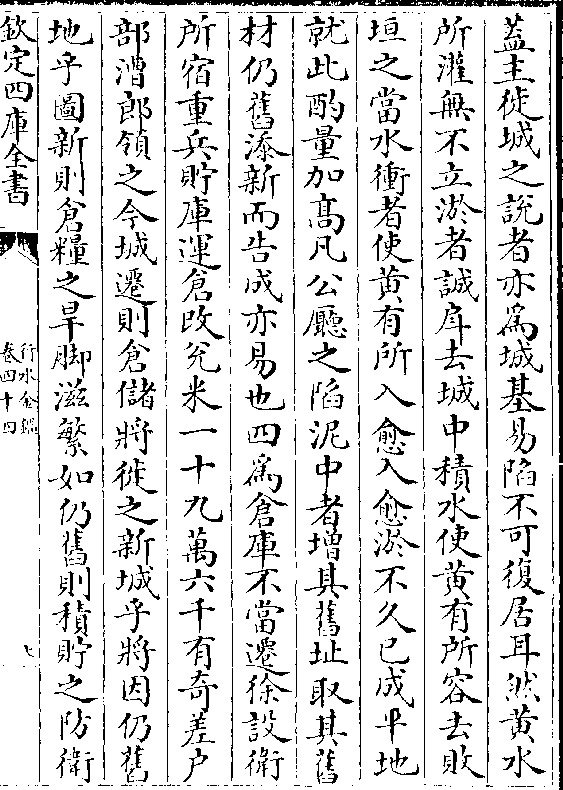 蓋主徙城之說者亦為城基易陷不可復居耳然黄水
所灌無不立淤者誠戽去城中積水使黄有所容去敗
垣之當水衝者使黄有所入愈入愈淤不久已成平地
就此酌量加髙凡公廳之陷泥中者增其舊址取其舊
材仍舊添新而告成亦易也四為倉庫不當遷徐設衛
所宿重兵貯庫運倉改兊米一十九萬六千有奇差户
部漕郎領之今城遷則倉儲將徙之新城乎將因仍舊
地乎圖新則倉糧之旱脚滋繁如仍舊則積貯之防衛
欽定四庫全書
行水金鑑
卷四十四
七